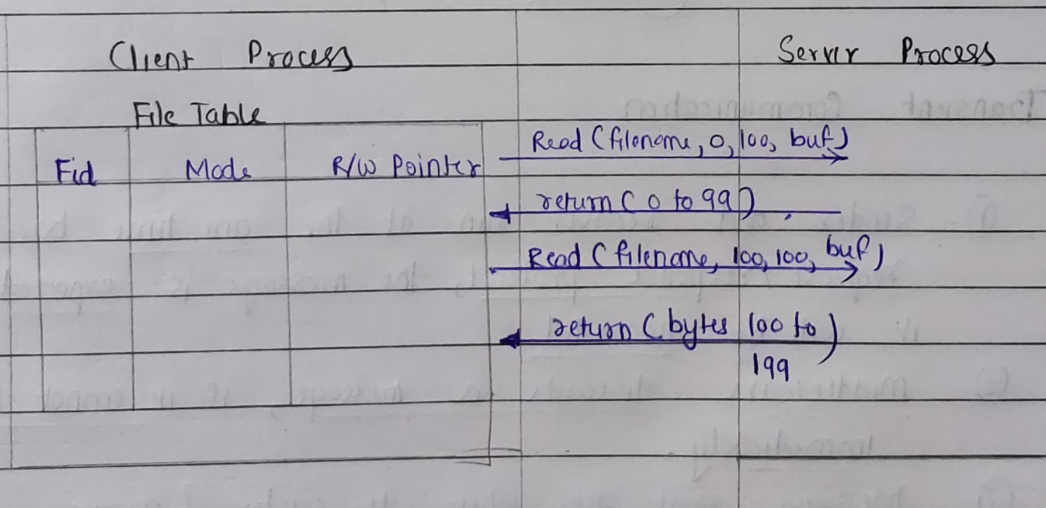 Client Process Server Process
File Table
Fid Mode R/W Pointer
Read (filename, 0, 100, buf)
return ( 0 to 99)
Read ( filename, 100, 100, buf)
return ( bytes 100 to
199 )